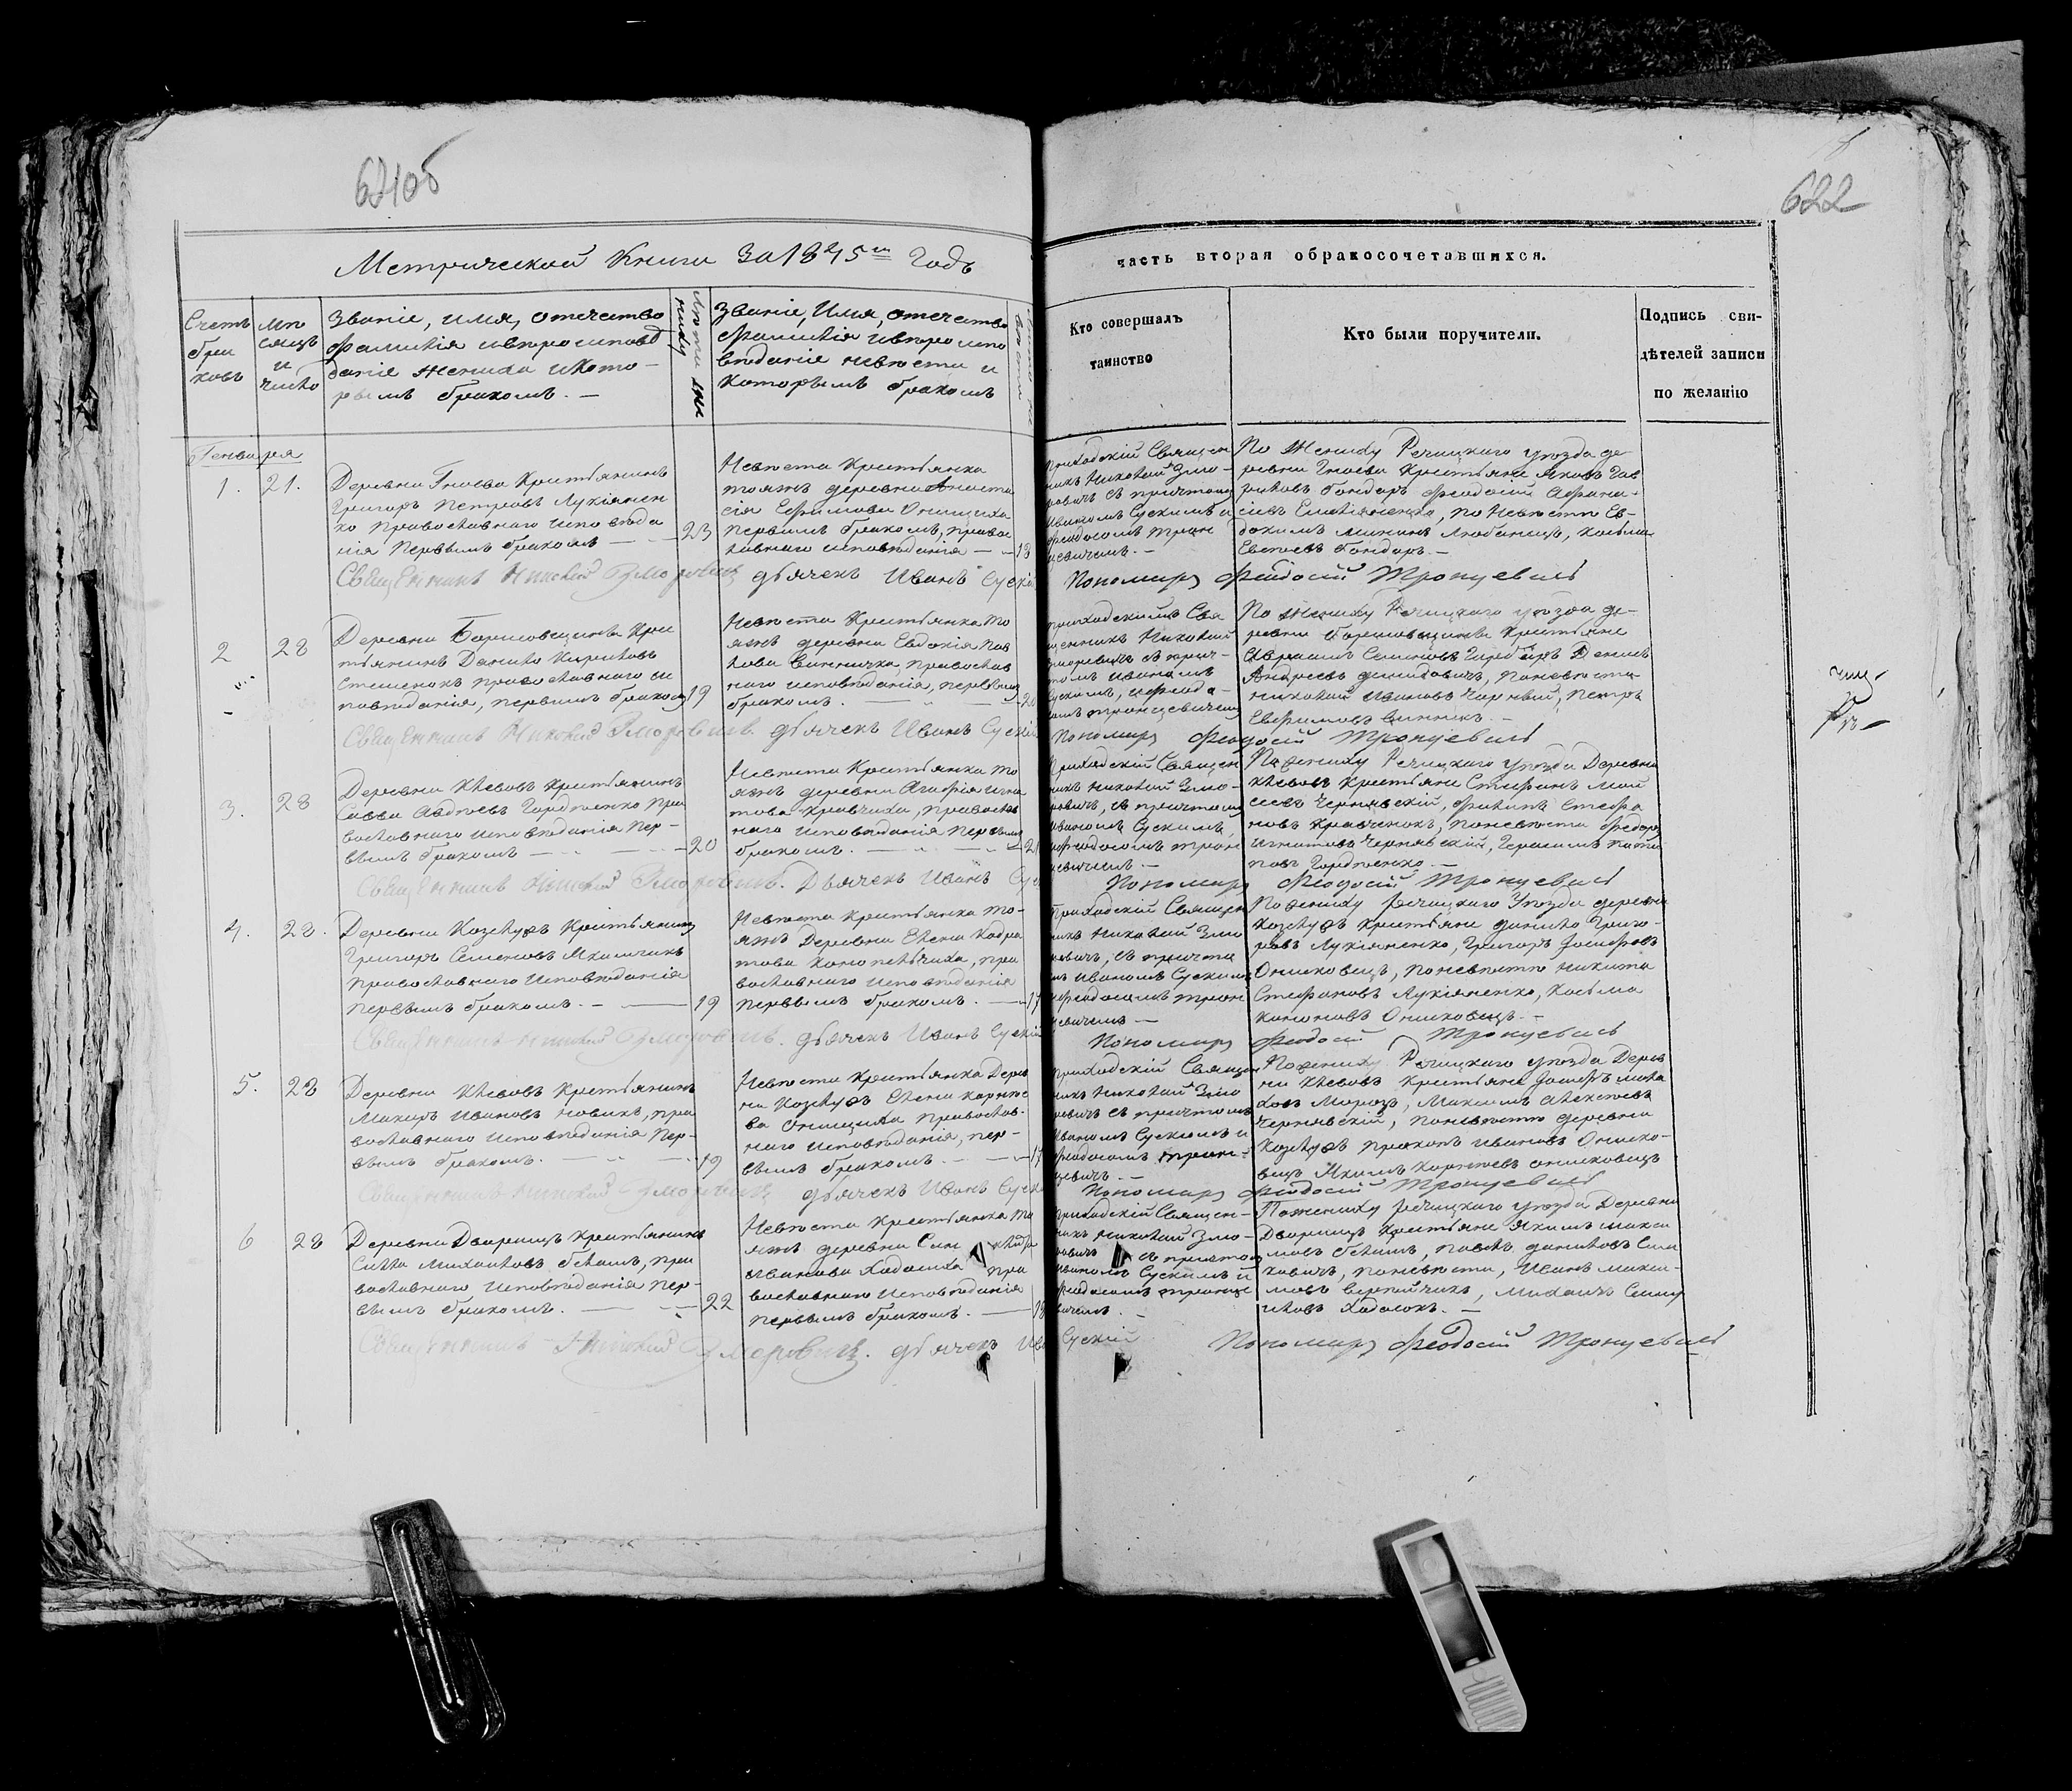 622
Метрической Книги За 1845 Годъ
часть вторая обракосочетавшихся.
Счетъ браковъ
мѣсяцъ и число
Званіе, имя, отечество
фамилія икотораго исповѣ
даніе жениха и кото-
рымъ бракомъ. —
Званіе, Имя, отечество
фамилія
вѣданіе невѣсты и
которымъ бракомъ
Кто совершалъ
таинство
Кто были поручители.
Подпись сви-
дѣтелей записи
по желанію
Генваря
1. 21.
Деревни Гноева Крестьянинъ
Григоръ Петровъ Лукіянен
ко Православнаго исповѣда
нія Первымъ бракомъ — 23
Невѣста Крестьянка
тояжъ деревни Анаста
сія Ефимова Онищиха
первымъ бракомъ, правос
лавнаго исповѣданія — 18
Приходскій Священ
никъ Николай Змо-
ровичъ съ причтомъ
Иваномъ Сускимъ и
феодосомъ трон
цевичемъ. —
По Жениху Речицкаго уѣзда де-
ревни Гноева Крестьяне Яковъ Гав
риловъ бондаръ феодосій Афана-
сіевъ Емельяненко, по Невѣстѣ Ев-
докимъ Мининъ Любанецъ, козьма
Евсѣевъ бондаръ. —
Священникъ Николай Зморовичъ дьячекъ Иванъ Сускій
Пономаръ Феодосій Тронцевичъ
2 28
Деревни Борисовщины Крес
тьянинъ Данило Кириловъ
православнаго ис
повѣданія, первымъ бракомъ 19
Невѣста Крестьянка то
яжъ деревни Евдокія Пав
лова Винничка, православ
наго исповѣданія, первымъ
бракомъ. — 20
приходскимъ Свя
щенникъ Николай
Зморовичъ съ прич-
томъ иваномъ
Сускимъ, ифеодо-
сомъ тронцевичемъ
По жениху Речицкаго уѣзда де-
ревни борисовщины Крестьяне
Авраамъ Семеновъ Денисъ
Андреевъ демидовичъ, поневѣсте
николай Ивановъ Чорный, Петръ
Евфимовъ винникъ. —
Священникъ Николай Зморовичъ. дьячекъ Иванъ Сускій
Пономаръ Феодосій Тронцевичъ
3. 28
Деревни Хлевовъ Крестьянинъ
Савва Авдѣевъ Гордѣенко Пра
вославнаго исповѣданія Пер-
вымъ бракомъ — 20
Невѣста Крестьянка то
яжъ деревни Агафія игна
това кравчиха, православ
наго исповѣданія первымъ
бракомъ. — 21
Приходскій Священ
никъ николай Змо-
ровичъ, съ причтомъ
иваномъ Сускимъ,
ифеодосомъ трон
цевичемъ —
Пожениху Речицкаго уѣзда Деревни
хлевовъ Крестьяне Стефанъ мой
сеевъ Чернявскій, филипъ Стефа
новъ кравченокъ, поневѣсте федоръ
игнатовъ чернявскій, Герасимъ
Гордѣенко. —
Священникъ Николай Зморовичъ. Дьячекъ Иванъ
Пономаръ Феодосій Тронцевичъ
4. 28.
Деревни Козлуфъ Крестьянинъ
Григоръ Семеновъ
православнаго исповѣданія
первымъ бракомъ. — 19
Невѣста крестьянка то-
яжъ Деревни Елена Кодра
това Конопельчиха, пра
вославнаго исповѣданія
первымъ бракомъ. — 17
Приходскій Священ
никъ николай Змо
ровичъ, съ причто
мъ иваномъ Сускимъ
ифеодосомъ трон
цевичемъ —
Пожениху речицкаго Уѣзда деревни
Козлуфъ крестьяне данило Григо-
ровъ Лукіяненко, Григоръ Іосифовъ
Онисковецъ, поневѣсте никита
Стефановъ Лукіяненко, Козьма
кононовъ Онисковецъ. —
Священникъ Николай Зморовичъ. дьячекъ Иванъ Сускій
Пономаръ Феодосій Тронцевичъ
5. 28
Деревни Хлевовъ Крестьянинъ
Макаръ Ивановъ новикъ, пра
вославнаго исповѣданія Пер-
вымъ бракомъ. — 19
Невѣста Крестьянка Дерев
ни Козлуфъ Елена Корнѣе
ва Онищиха Православ-
наго исповѣданія, пер-
вымъ бракомъ. — 17
приходскій Священ
никъ николай Змо
ровичъ съ причтомъ
Иваномъ Сускимъ и
феодосомъ трон-
цевичъ. —
Пожениху Речицкаго уѣзда Дерев
ни хлевовъ Крестьяне Іосифъ мала
ховъ Морозъ, Максимъ алексѣевъ
чернявскій, поневѣсте деревни
Козлуфъ прокопъ ивановъОниско-
вецъ Якимъ Корнѣевъ онисковецъ
Священникъ Николай Зморовичъ дьячекъ Иванъ Суск
Пономаръ Феодосій Тронцевичъ
6 28
Деревни Дворищъ Крестьянинъ
Сила Михайловъ бѣлашъ, пра
вославнаго исповѣданія Пер-
вымъ бракомъ. — 22
Невѣста крестьянка то
яжъ деревни
Иванова Ходосиха пра
вославнаго исповѣданія
первымъ бракомъ. — 18
приходскій Священ-
никъ николай Змо-
ровичъ съ причтом
иваномъ Сускимъ и
феодосомъ тронце
вичемъ. —
Пожениху речицкаго уѣзда Деревни
Дворищъ крестьяне Якимъ макси
мовъ бѣлашъ, павелъ даниловъ
поневѣсте, Иванъ макси-
мовъ, Михаилъ
Ходосокъ. —
Священникъ Николай Зморовичъ. дьячекъ Ив Сускій
Пономаръ Феодосій Тронцевичъ